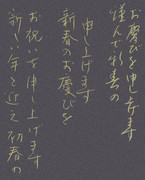 謹んで初春の
お慶びを申し上げます
新春のお慶びを
申し上げます
新しい年を迎え初春の
お祝いを申し上げます